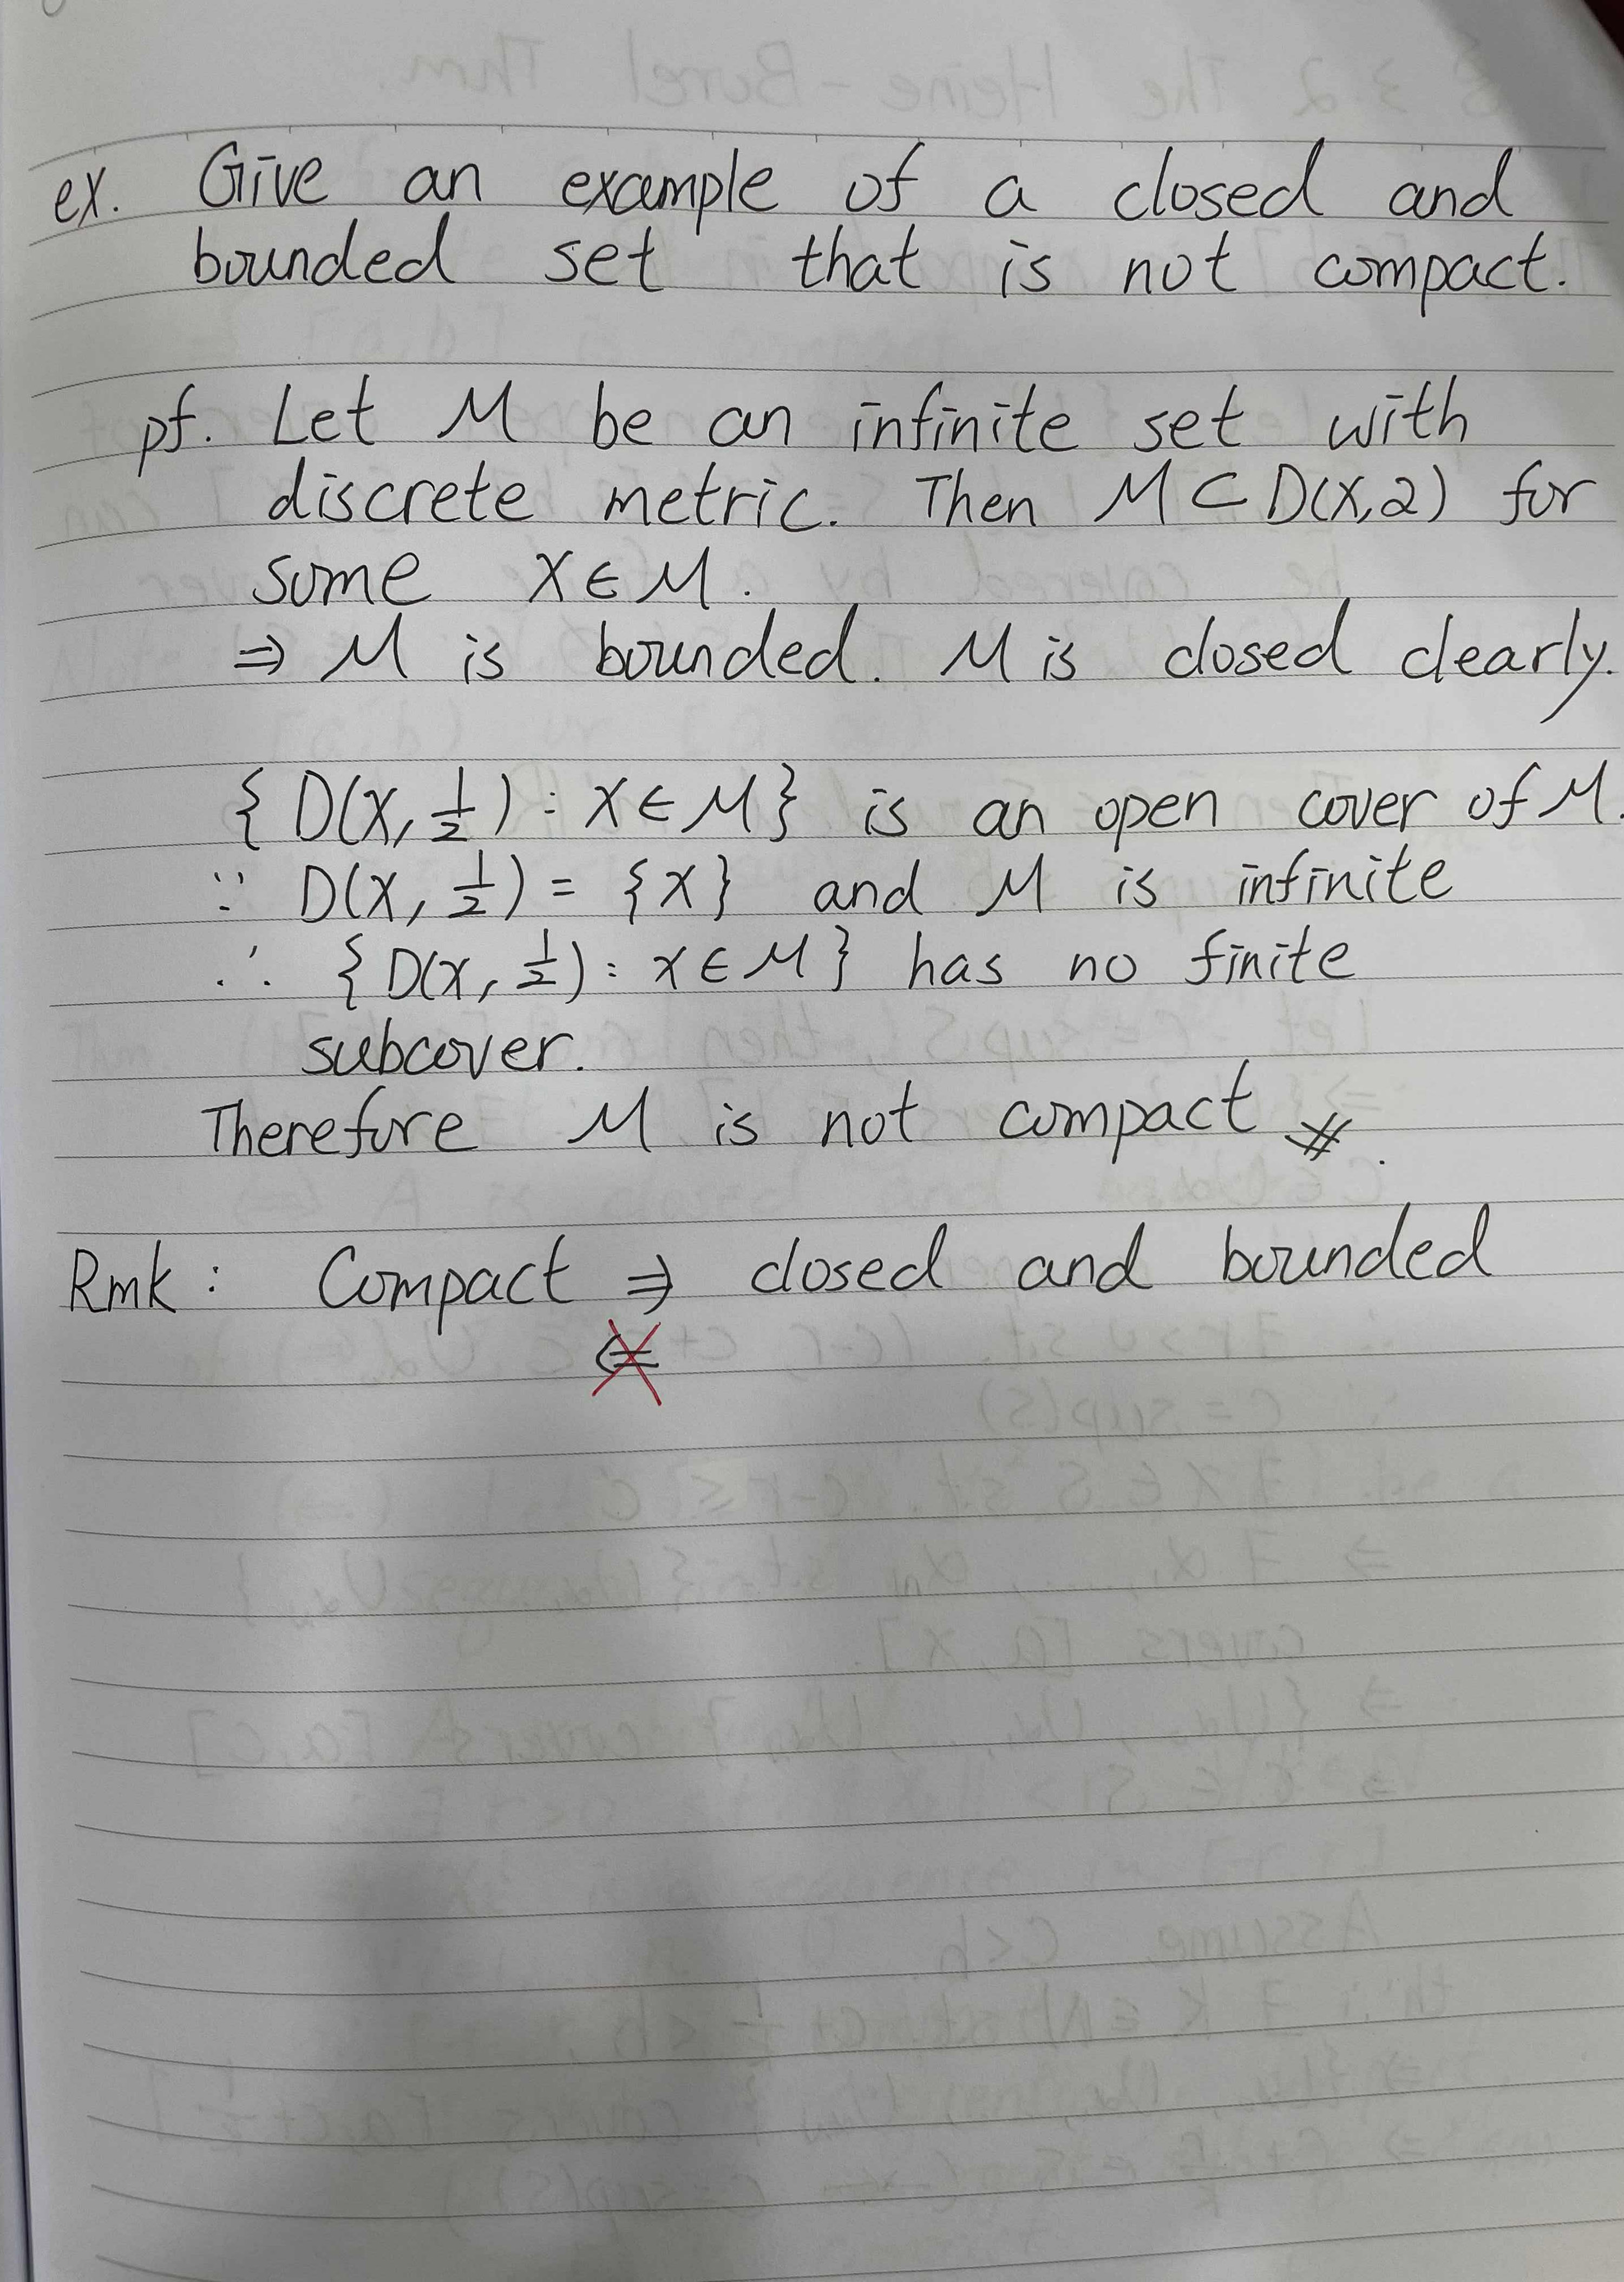 ex. Give an example of a closed and
bounded set that is not compact.
pf. Let M be an infinite set with
discrete metric. Then M ⊂ D(x,2) for
some x ∈ M.
⇒ M is bounded. M is closed clearly.
{ D(x, 1/2) : x ∈ M } is an open cover of M.
∵ D(x, 1/2) = {x} and M is infinite
∴ { D(x, 1/2) : x ∈ M } has no finite
subcover.
Therefore M is not compact #.
Rmk : Compact ⇒ closed and bounded
⇐